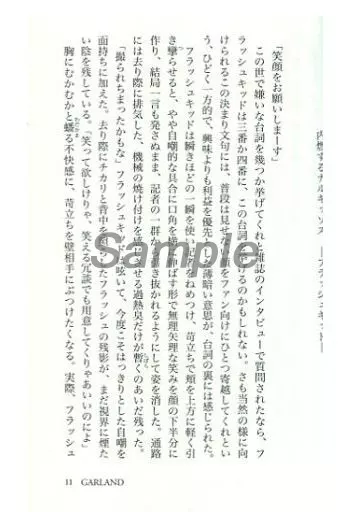 「笑顔をお願いしまーす」
この世で嫌いな台詞を幾つか挙げてくれと雑誌のインタビューで質問されたなら、フ
ラッシュキッドは三番か四番に、この台詞を挙げるのかもしれない。さも当然の様に向
けられるこの決まり文句には、普段は見せない顔をファン向けにひとつ寄越してくれとい
う、ひどく一方的で、興味よりも利益を優先した薄暗い意思が、台詞の裏には感じられた。
フラッシュキッドは瞬きほどの一瞬を使い記者をねめつけ、苛立ちで頬を上方に軽く引
き攣らせると、やや自嘲的な具合に口角を横に伸ばす形で無理矢理な笑みを顔の下半分に
作り、結局一言も発さぬまま、記者の一群から引き抜かれるようにして姿を消した。通路
には去り際に排気した、機械の焼け付けを感じさせる過熱臭だけが暫くのあいだ残った。
「撮られちまったかもな」フラッシュキッドは呟いて、今度こそはっきりとした自嘲を
面持ちに加えた。去り際にチカリと背中を照ったフラッシュの残影が、まだ視界に煙た
い陰を残している。「笑って欲しけりゃ、笑える冗談でも用意してくりゃあいいのによ」
胸にむかむかと蟠る不快感に、苛立ちを壁相手にぶつけたくなる。実際、フラッシュ
11 GARLAND
Sample